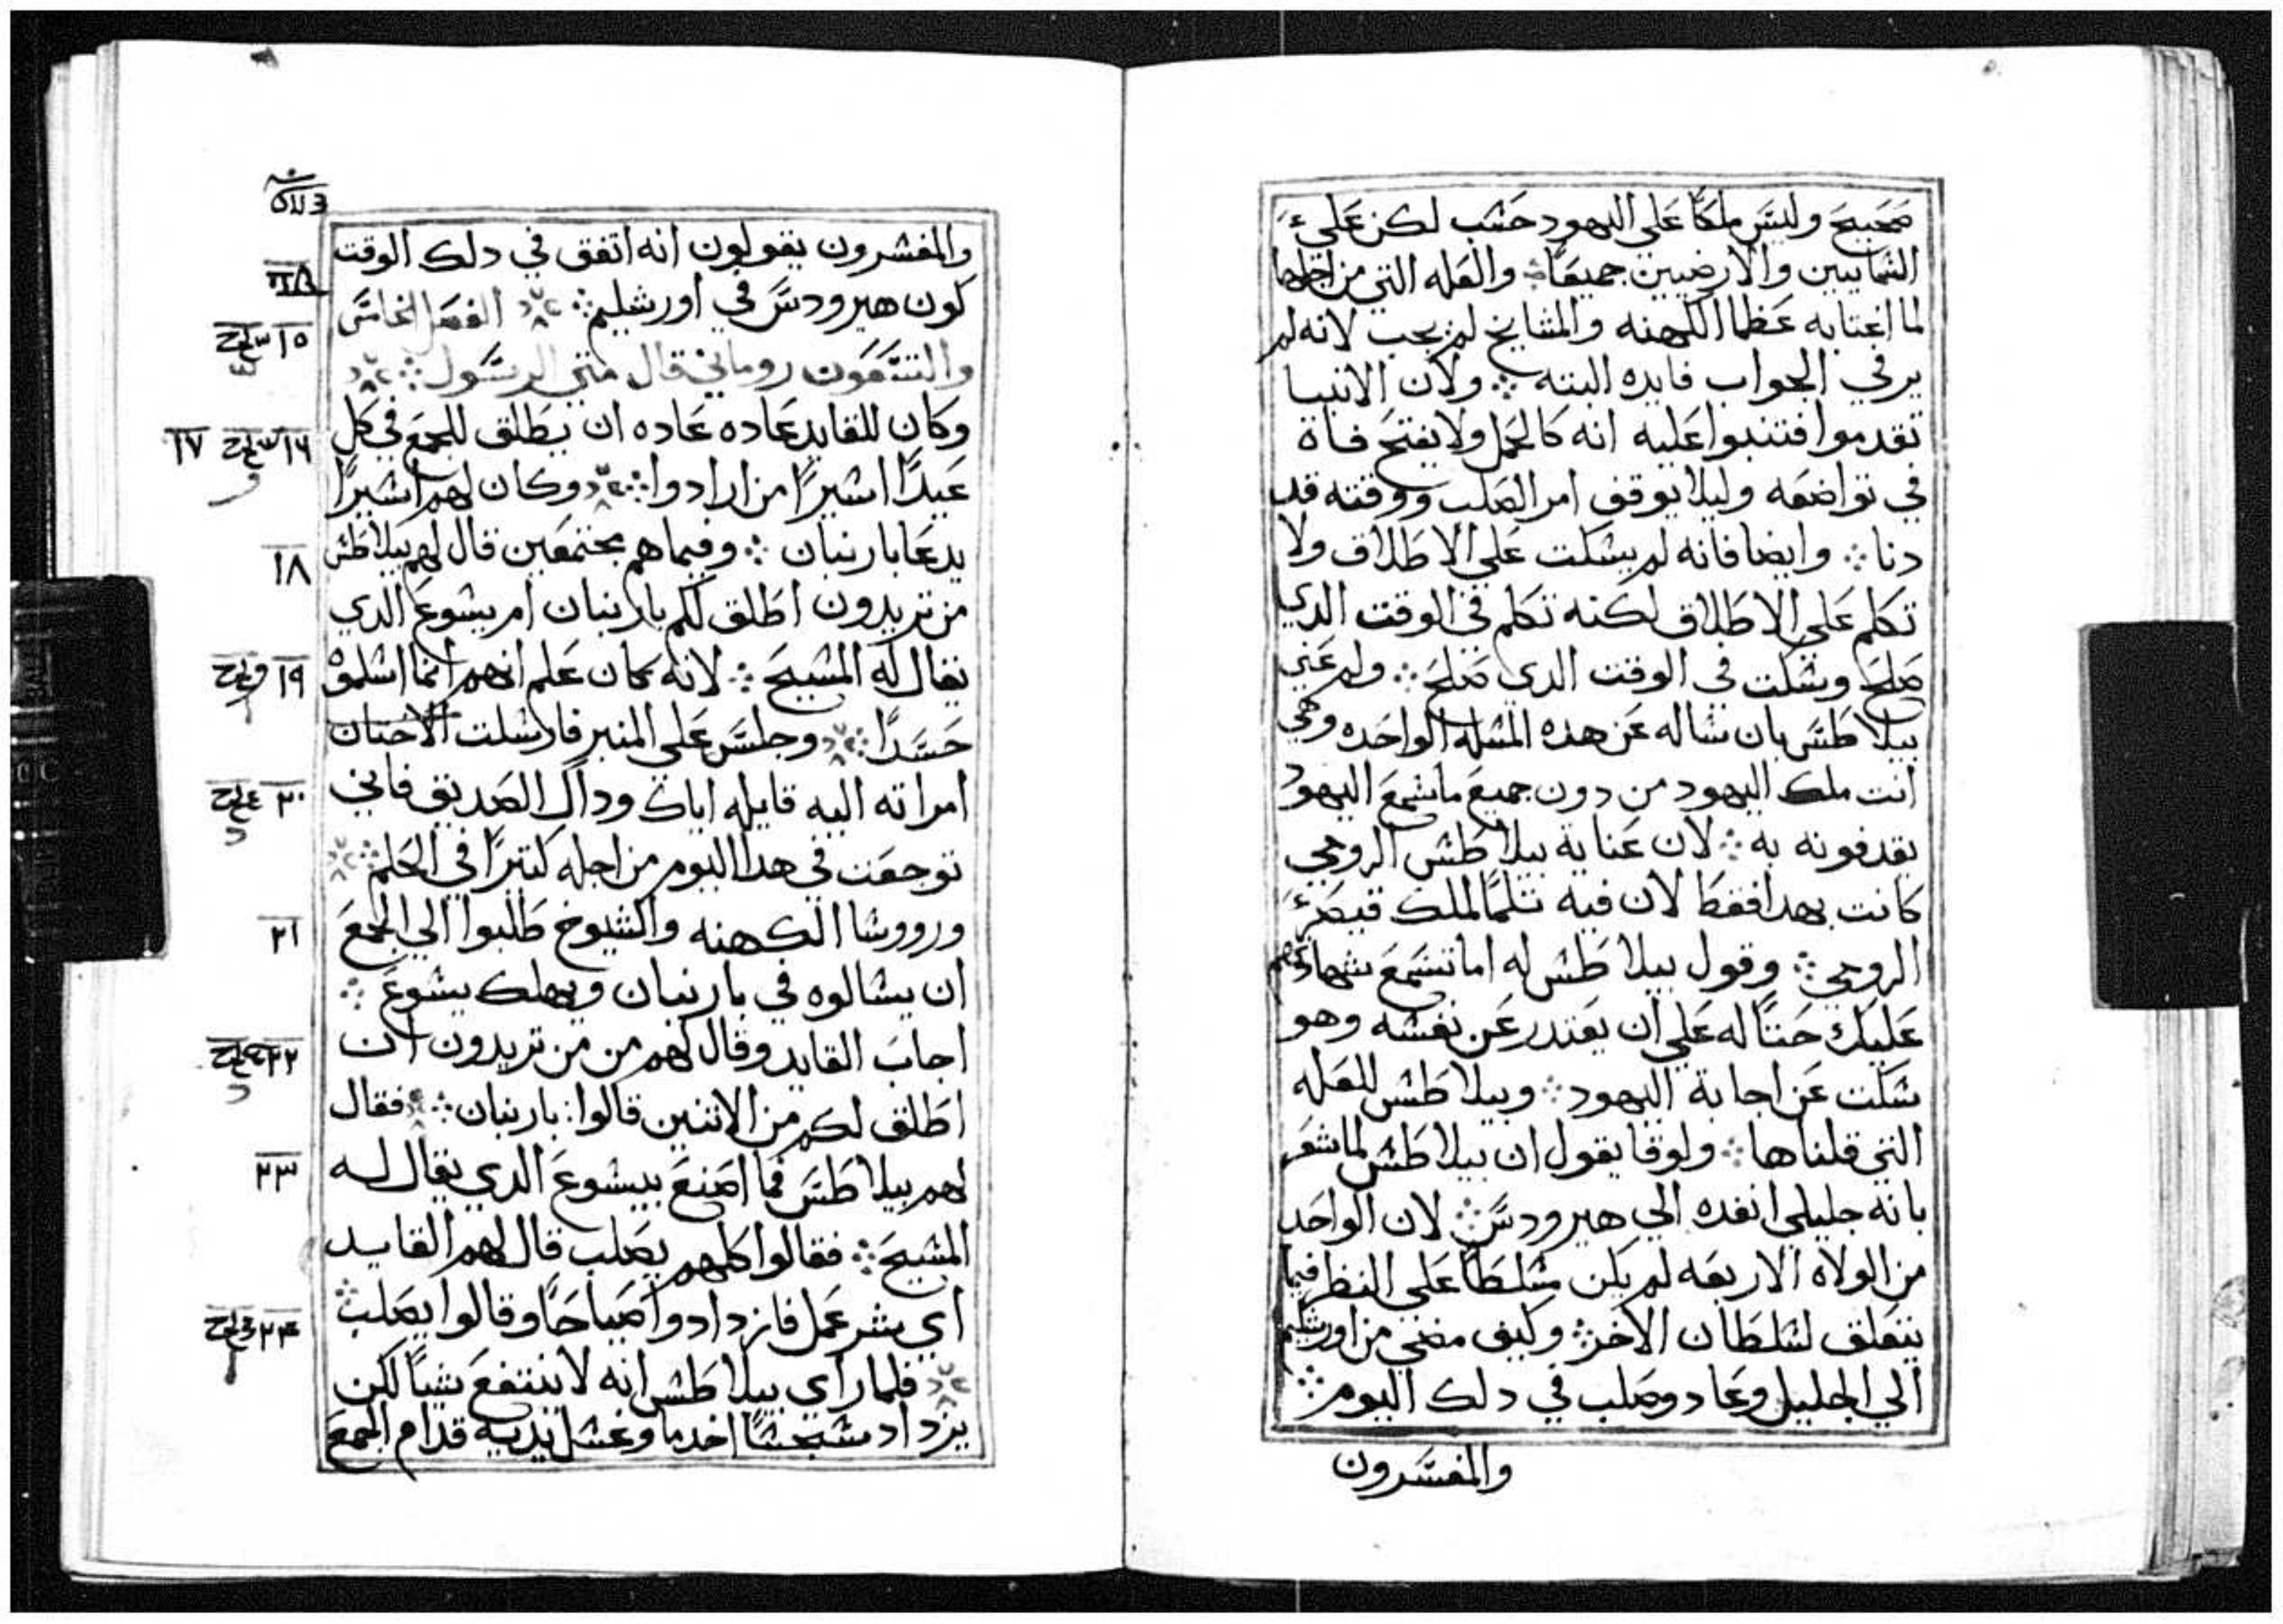 صحيح وليس ملكًا علي اليهود حسب لكن علي
السمايين والارضيين جميعًا ∴ والعله التي من اجلها
لما اغتابه عظما الكهنه والمشايخ لم يجب لانه لم
ير في الجواب فايده البته ∴ ولان الانبيا
تقدموا فتنبوا عليه انه كالحمل ولا يفتح فاة
في تواضعه وليلا يوقف امر الصلب ووقته قد
دنا ∴ وايضا فانه لم يسكت علي الاطلاق ولا
تكلم علي الاطلاق لكنه تكلم في الوقت الدي
صلح وسكت في الوقت الدي صلح ∴ ولم عني
بيلاطس بان ساله عن هده المسله الواحده وهي
انت ملك اليهود من دون جميع ما سمع اليهود
يقدفونه به ∴ لان عناية بيلاطس الرومي
كانت بهدا فقط لان فيه تلمًا لملك قيصر
الرومي ∴ وقول بيلاطس له اما تسمع شهادتهم
عليك حتًا له علي ان يعتدر عن نفسه وهو
سكت عن اجابة اليهود ∴ وبيلاطس للعله
التي قلناها ∴ ولوقا يقول ان بيلاطس لما شعر
بانه جليلي انفده الي هيرودس ∴ لان الواحد
من الولاه الاربعه لم يكن مسلطًا علي النظر فيما
يتعلق لسلطان الاخر ∴ وكيف مضي من اورشليم
الي الجليل وعاد وصلب في دلك اليوم ∴
والمفسرون
والمفسرون يقولون انه اتفق في دلك الوقت
كون هيرودس في اورشليم ∴ الفصل الخامس
والتسعون روماني قال متي الرسول ∴
١٥
وكان للقايد عاده عاده ان يطلق للجمع في كل
١٦ ١٧
عيدًا اسيرًا من ارادوا ∴ وكان لهم اسيرًا
يدعا بارنبان ∴ وفيما هم مجتمعين قال لهم بيلاطس
١٨
من تريدون اطلق لكم بارنبان ام يسوع الدي
يقال له المسيح ∴ لانه كان علم انهم انما اسلموة
١٩
حسدًا ∴ وجلس علي المنبر فارسلت الاختان
امراته اليه قايله اياك وداك الصديق فاني
٢٠
توجعت في هدا اليوم من اجله كتيرًا في الحلم ∴
ورووسا الكهنه والشيوخ طلبوا الي الجمع
٢١
ان يسالوه في بارنبان ويهلك يسوع ∴
اجاب القايد وقال لهم من من تريدون ان
٢٢
اطلق لكم من الاتنين قالوا بارنبان ∴ فقال
لهم بيلاطس فما اصنع بيسوع الدي يقال له
٢٣
المسيح ∴ فقالوا كلهم يصلب قال لهم القايد
اي شر عمل فازدادوا صياحًا وقالوا يصلب ∴
٢٤
فلما راي بيلاطس انه لا ينتفع شيًا لكن
يزداد سجسًا اخد ما وغسل يديه قدام الجمع